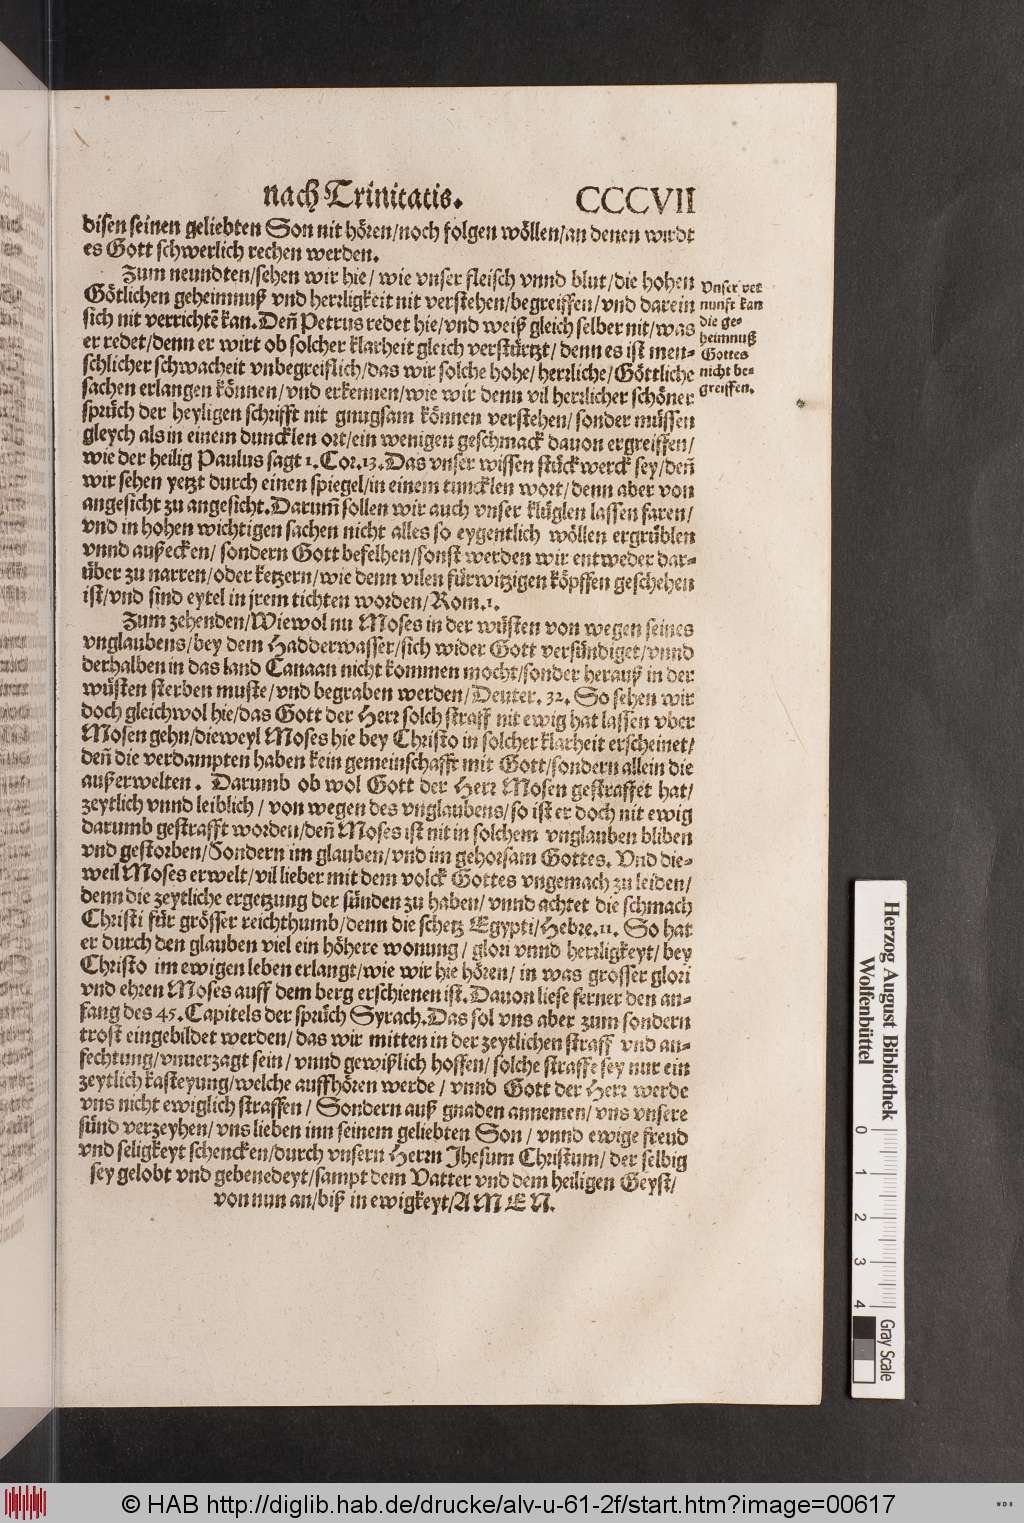 nach Trinitatis. CCCVII
disen seinen geliebten Son nit hören/noch folgen wöllen/an denen wirdt
es Gott schwerlich rechen werden.
Zum neundten/sehen wir hie/ wie vnser fleisch vnnd blut/die hohen
Götlichen geheimnuß vnd herrligkeit nit verstehen/begreiffen/vnd darein
sich nit verrichtē kan. Deñ Petrus redet hie/vnd weiß gleich selber nit/was
er redet/denn er wirt ob solcher klarheit gleich verstürtzt/ denn es ist men-
schlicher schwacheit vnbegreiflich/das wir solche hohe/ herrliche/Göttliche
sachen erlangen können/vnd erkennen/wie wir denn vil herrlicher schöner
sprüch der heyligen schrifft nit gnugsam können verstehen/sonder müssen
gleych als in einem duncklen ort/ein wenigen geschmack dauon ergreiffen/
wie der heilig Paulus sagt 1. Cor. 13. Das vnser wissen stückwerck sey/deñ
wir sehen yetzt durch einen spiegel/in einem tuncklen wort/denn aber von
angesicht zu angesicht. Darum̃ sollen wir auch vnser klüglen lassen faren/
vnd in hohen wichtigen sachen nicht alles so eygentlich wöllen ergrüblen
vnnd außecken/ sondern Gott befelhen/sonst werden wir entweder dar-
über zu narren/oder ketzern/wie denn vilen fürwitzigen köpffen geschehen
ist/vnd sind eytel in jrem tichten worden/Rom. 1.
Vnser ver
nunfft kan
die ge-
heimnuß
Gottes
nicht be-
greiffen.
Zum zehenden/Wiewol nu Moses in der wüsten von wegen seines
vnglaubens/bey dem Hadderwasser/sich wider Gott versündiget/vnnd
derhalben in das land Canaan nicht kommen mocht/sonder herauß in der
wüsten sterben muste/vnd begraben werden/Deuter. 32. So sehen wir
doch gleichwol hie/das Gott der Herr solch straff nit ewig hat lassen vber
Mosen gehn/dieweyl Moses hie bey Christo in solcher klarheit erscheinet/
deñ die verdampten haben kein gemeinschafft mit Gott/sondern allein die
außerwelten. Darumb ob wol Gott der Herr Mosen gestraffet hat/
zeytlich vnnd leiblich/ von wegen des vnglaubens/so ist er doch nit ewig
darumb gestrafft worden/deñ Moses ist nit in solchem vnglauben bliben
vnd gestorben/Sondern im glauben/vnd im gehorsam Gottes. Vnd die-
weil Moses erwelt/vil lieber mit dem volck Gottes vngemach zu leiden/
denn die zeytliche ergetzung der sünden zu haben/ vnnd achtet die schmach
Christi für grösser reichthumb/denn die schetz Egypti/Hebre. 11. So hat
er durch den glauben viel ein höhere wonung/ glori vnnd herrligkeyt/ bey
Christo im ewigen leben erlangt/wie wir hie hören/ in was grosser glori
vnd ehren Moses auff dem berg erschienen ist. Dauon liese ferner den an-
fang des 45. Capitels der sprüch Syrach. Das sol vns aber zum sondern
trost eingebildet werden/ das wir mitten in der zeytlichen straff vnd an-
fechtung/vnuerzagt sein/ vnnd gewißlich hoffen/ solche straffe sey nur ein
zeytlich kasteyung/welche auffhören werde/ vnnd Gott der Herr werde
vns nicht ewiglich straffen/ Sondern auß gnaden annemen/ vns vnsere
sünd verzeyhen/ vns lieben inn seinem geliebten Son/ vnnd ewige freud
vnd seligkeyt schencken/durch vnsern Herrn Jhesum Christum/ der selbig
sey gelobt vnd gebenedeyt/sampt dem Vatter vnd dem heiligen Geyst/
von nun an/biß in ewigkeyt/AMEN.
Herzog August Bibliothek
Wolfenbüttel
0 1 2 3 4
Gray Scale
© HAB http://diglib.hab.de/drucke/alv-u-61-2f/start.htm?image=00617